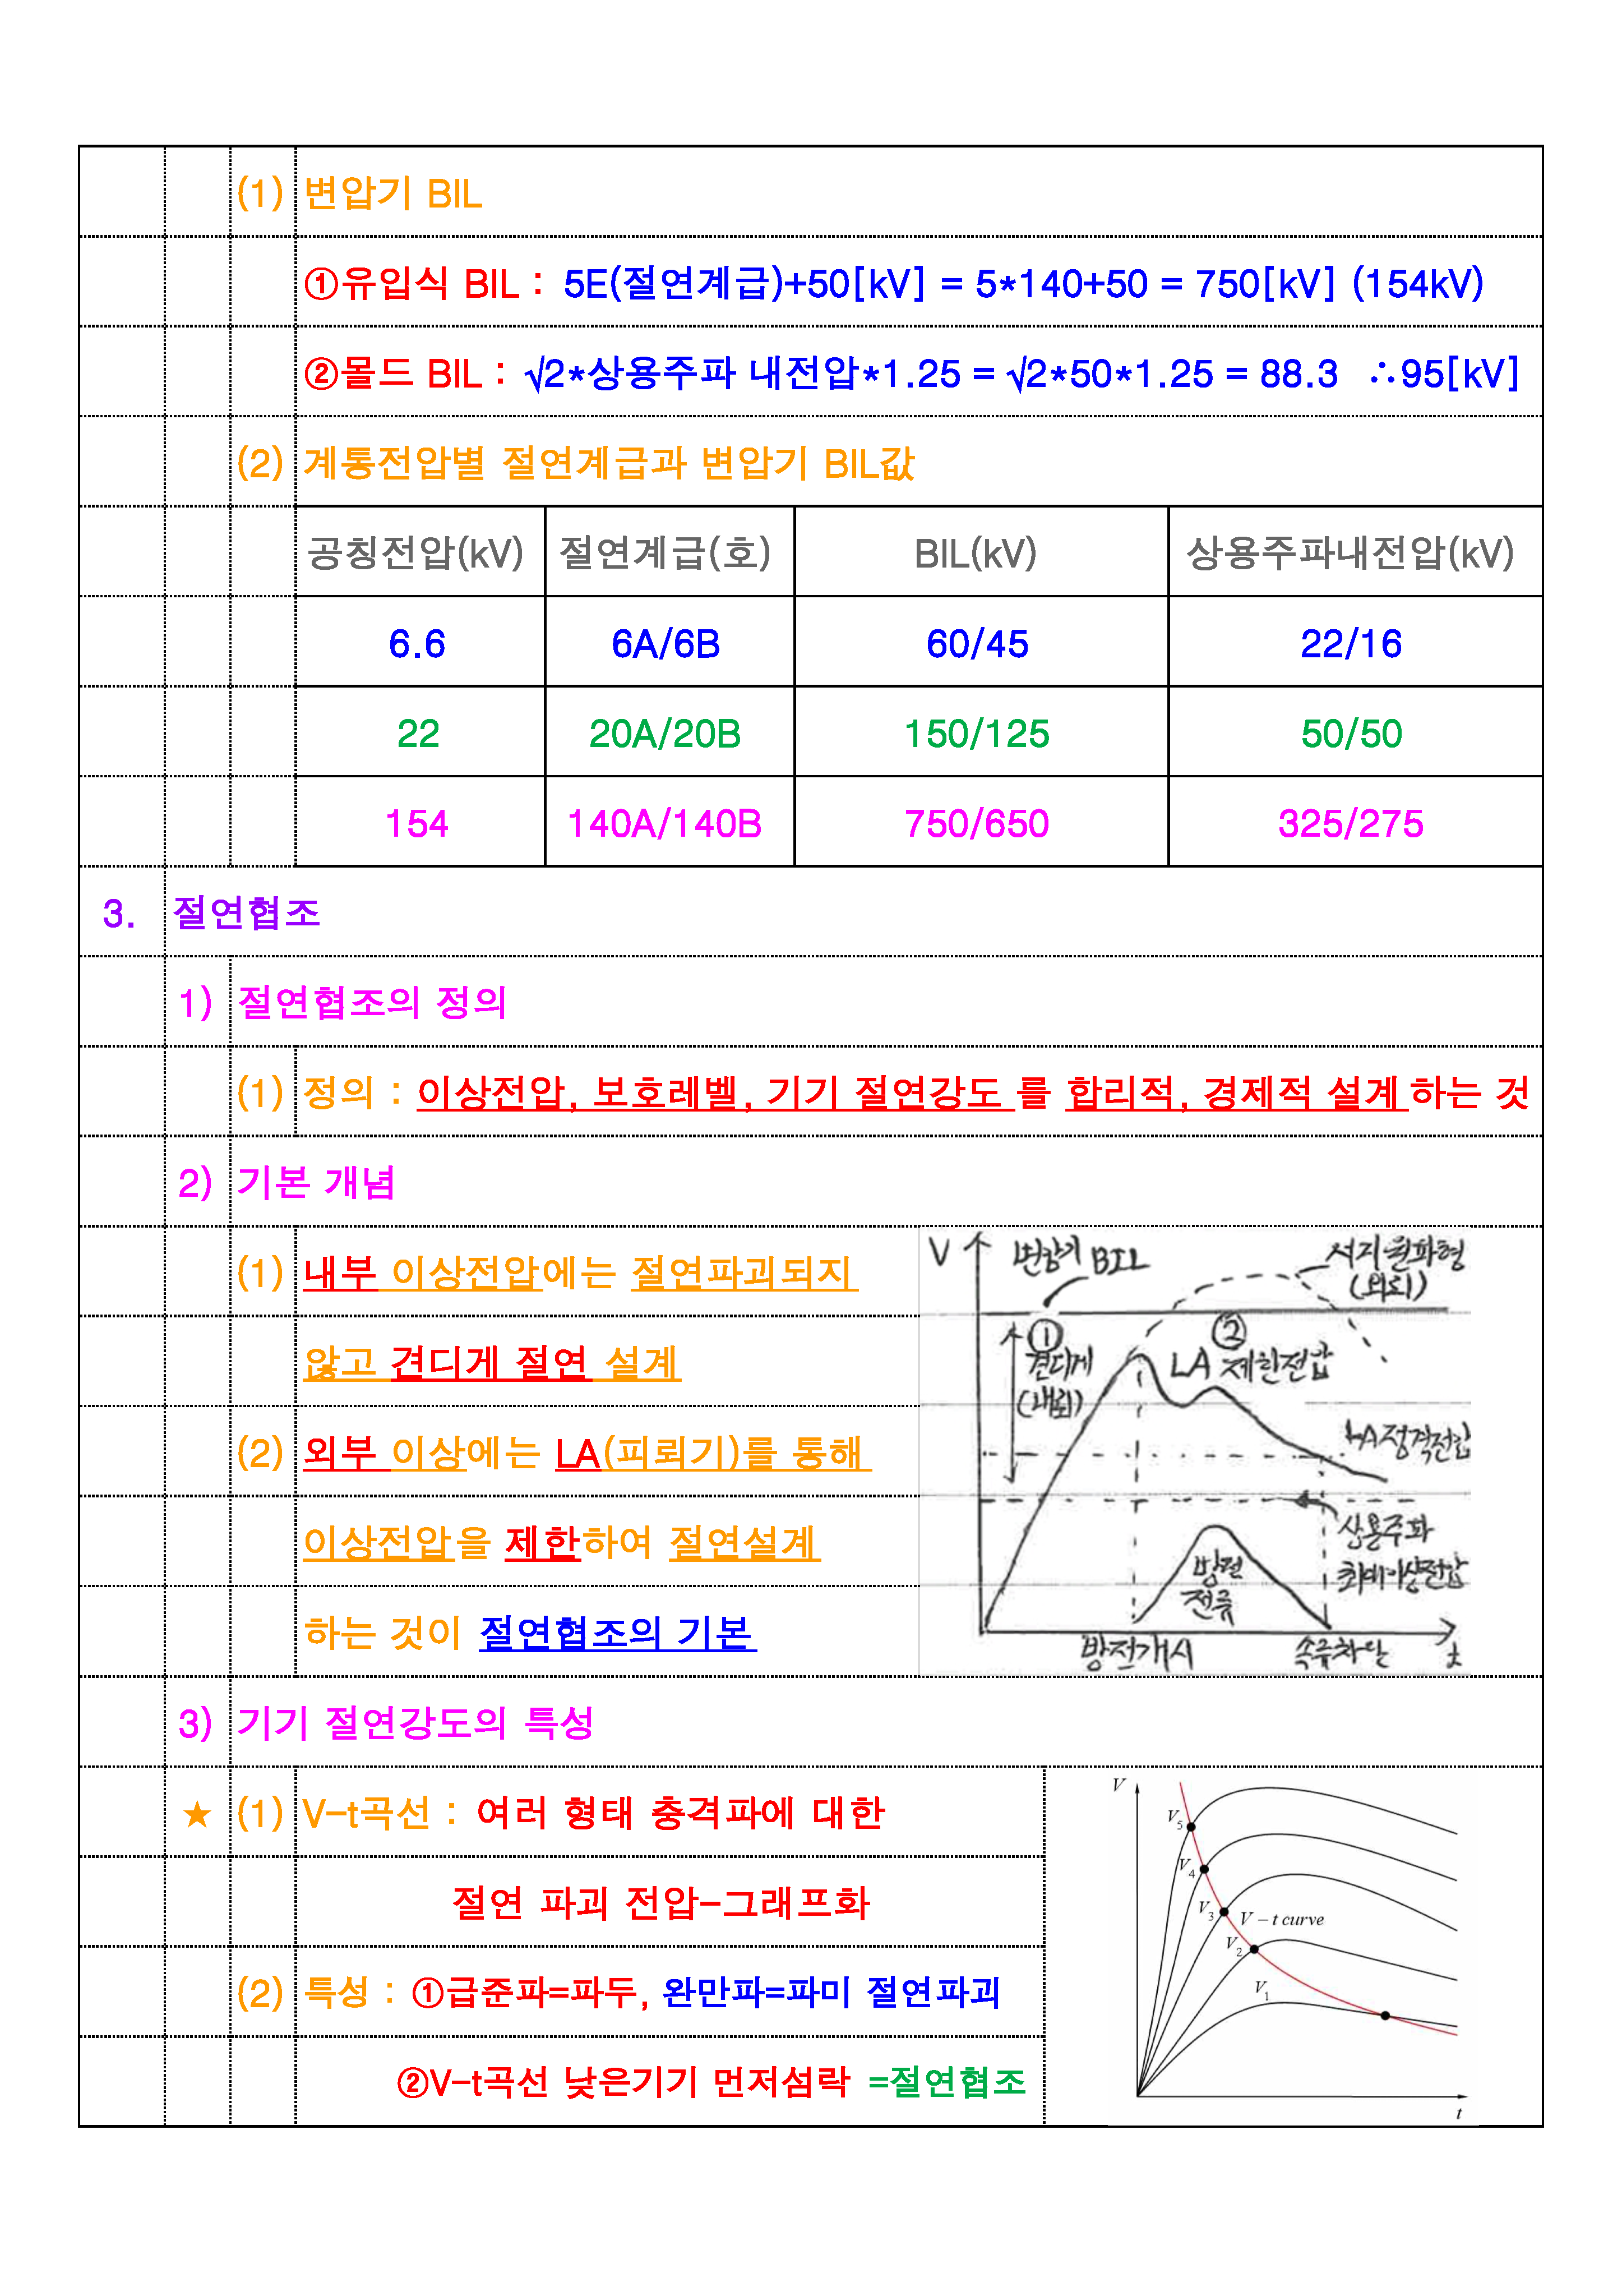 (1) 변압기 BIL
①유입식 BIL : 5E(절연계급)+50[kV] = 5*140+50 = 750[kV] (154kV)
②몰드 BIL : √2*상용주파 내전압*1.25 = √2*50*1.25 = 88.3 ∴95[kV]
(2) 계통전압별 절연계급과 변압기 BIL값
공칭전압(kV) 절연계급(호) BIL(kV) 상용주파내전압(kV)
6.6 6A/6B 60/45 22/16
22 20A/20B 150/125 50/50
154 140A/140B 750/650 325/275
3. 절연협조
1) 절연협조의 정의
(1) 정의 : 이상전압, 보호레벨, 기기 절연강도 를 합리적, 경제적 설계 하는 것
2) 기본 개념
(1) 내부 이상전압에는 절연파괴되지
않고 견디게 절연 설계
(2) 외부 이상에는 LA(피뢰기)를 통해
이상전압을 제한하여 절연설계
하는 것이 절연협조의 기본
V
변압기 BIL
서지원파형
(외뢰)
①
견디게
(내뢰)
②
LA 제한전압
LA정격전압
상용주파
최대이상전압
방전
전류
방전개시
속류차단
t
3) 기기 절연강도의 특성
★ (1) V-t곡선 : 여러 형태 충격파에 대한
절연 파괴 전압-그래프화
(2) 특성 : ①급준파=파두, 완만파=파미 절연파괴
②V-t곡선 낮은기기 먼저섬락 =절연협조
V
V5
V4
V3
V – t curve
V2
V1
t